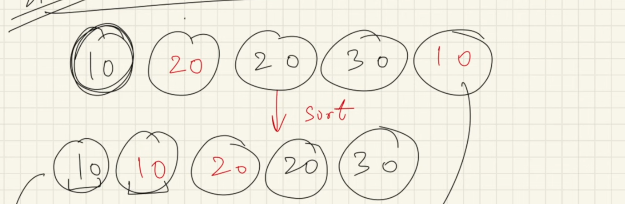 10 20 20 30 10
sort
10 10 20 20 30